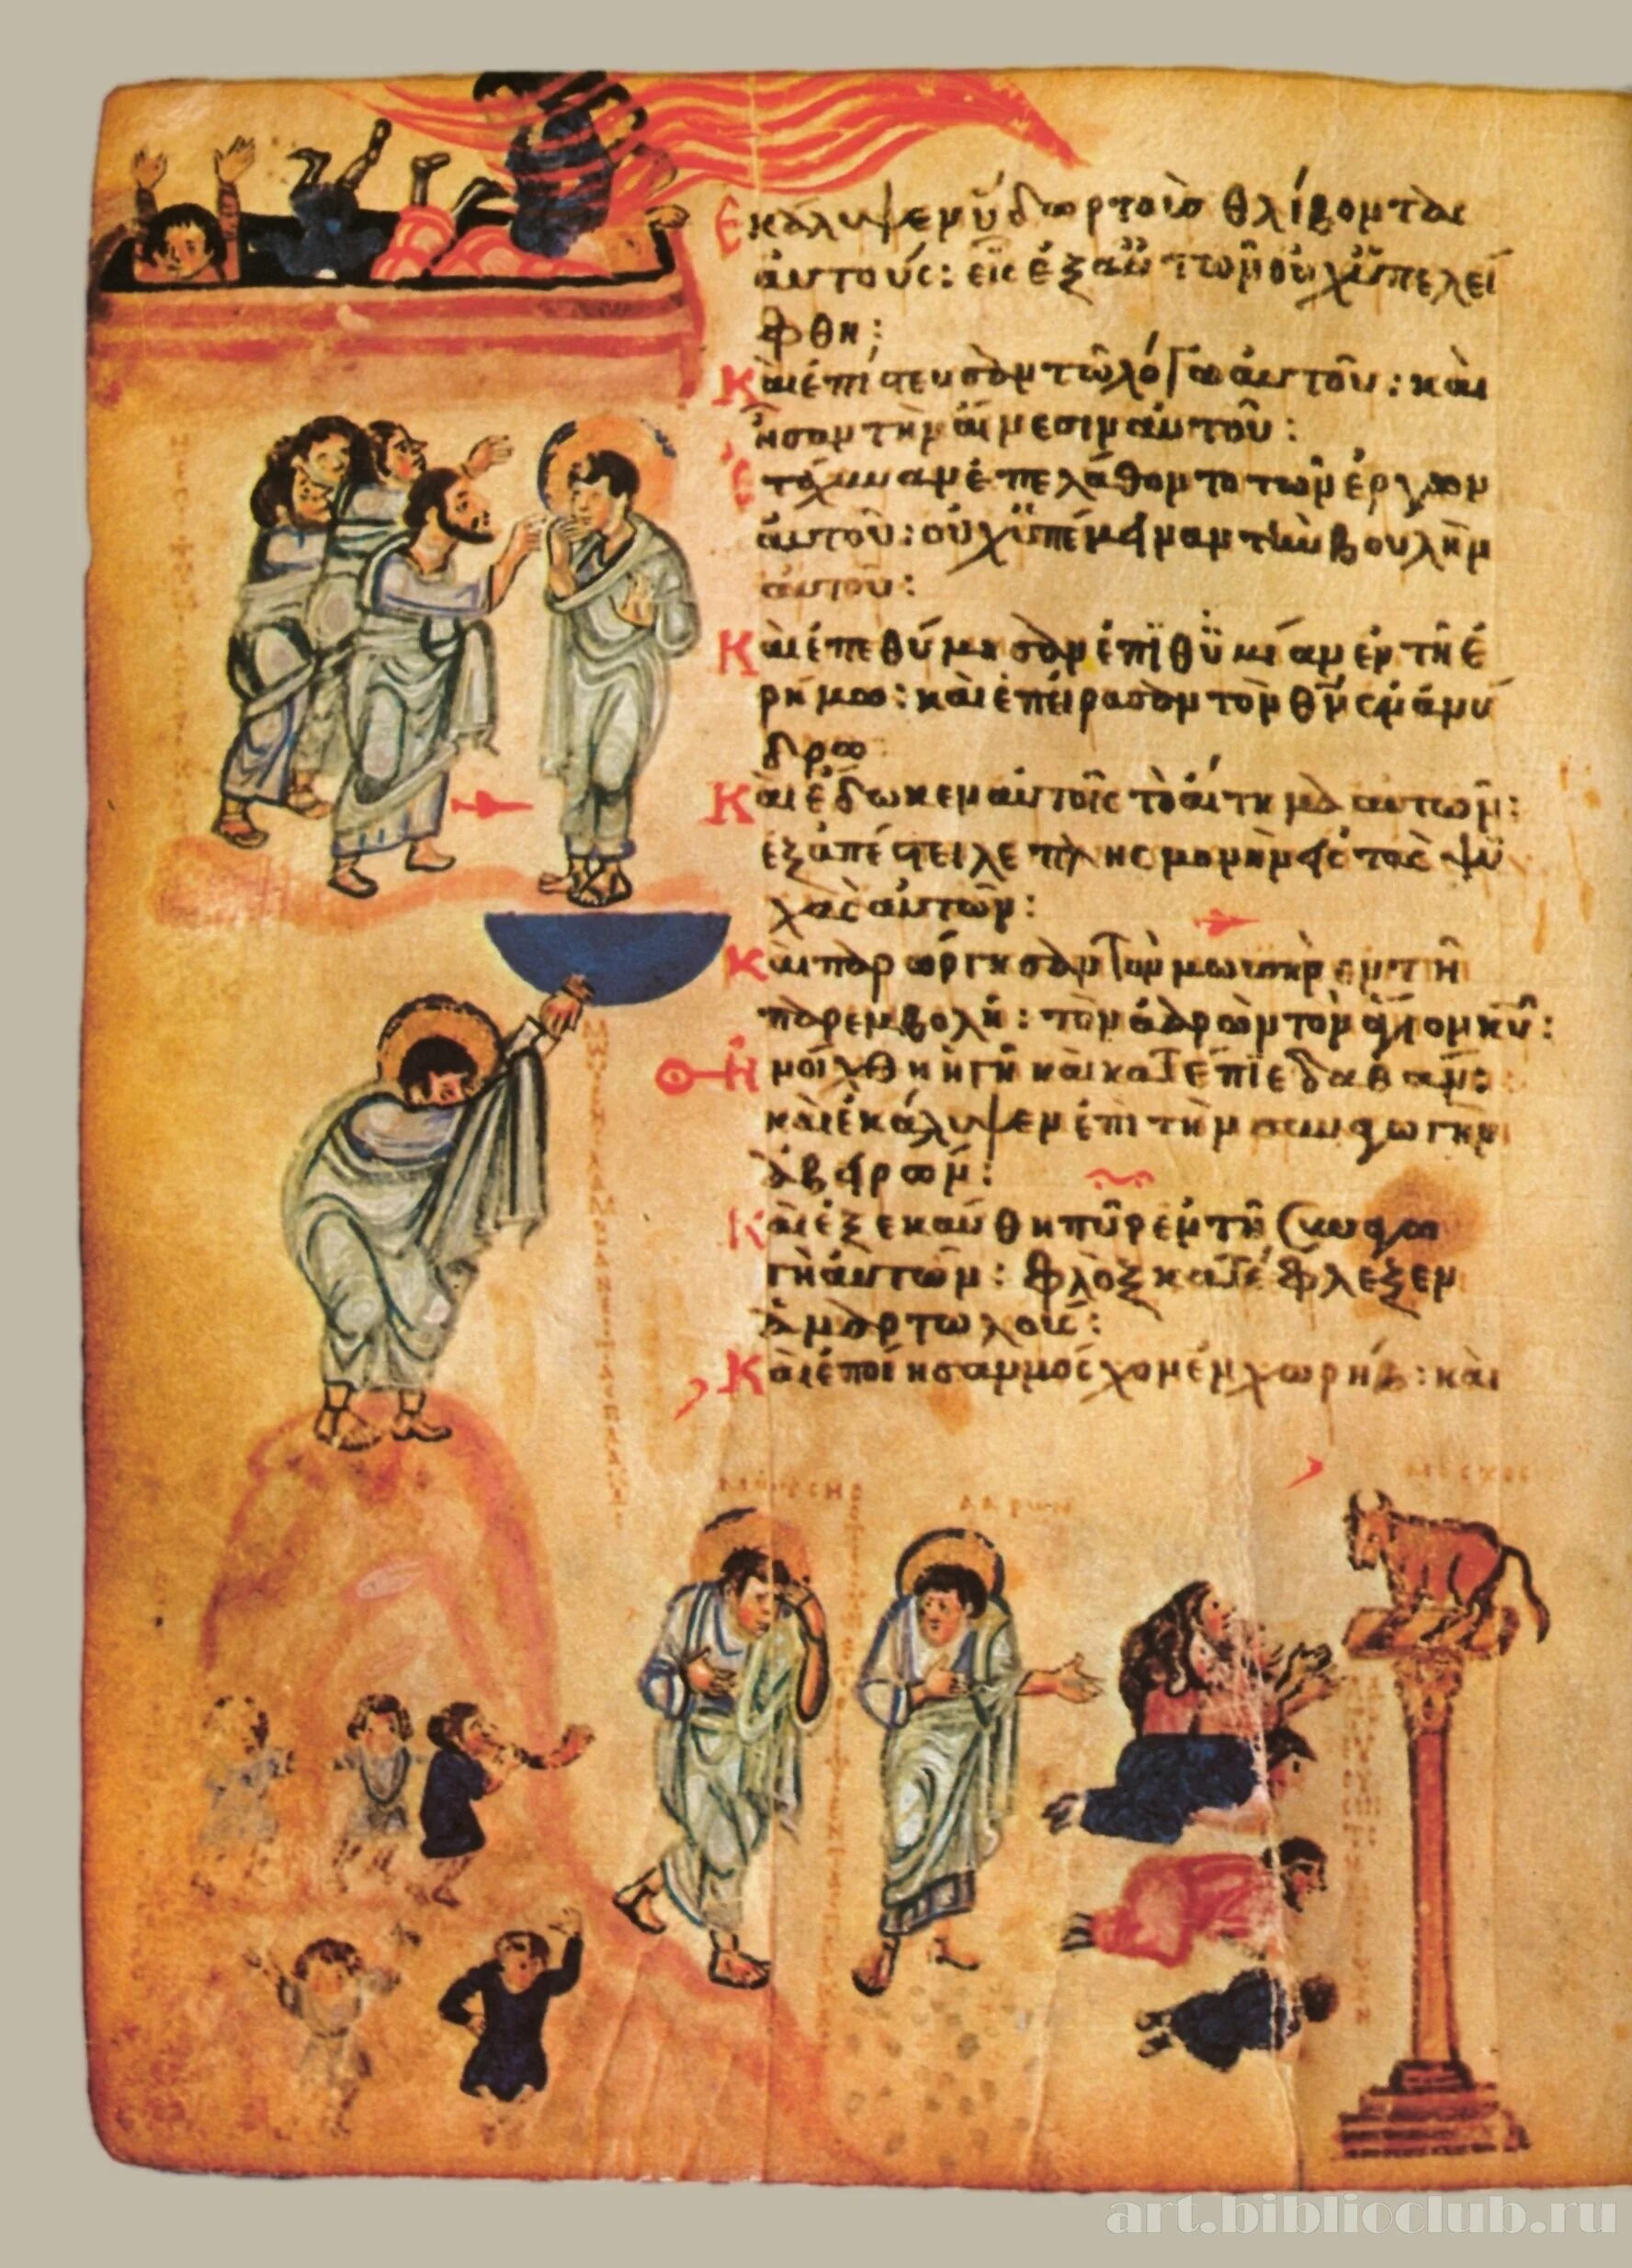 Ἐκάλυψεν ὕδωρ τοὺσ θλίβοντας
ἀυτούς: εἷς ἐξ αὐτῶν οὐχ ὑπελεί
φθη:
Κὰι ἐπίστευσαν τῶ λόγω ἀυτοῦ: κὰι
ἦσαν τὴν ἄινεσιν ἀυτοῦ:
Ἐτάχυναν ἐπελάθοντο τῶν ἔργων
ἀυτοῦ: οὐχ ὑπέμειναν τὴν βουλὴν
ἀυτοῦ:
Κὰι ἐπεθύμησαν ἐπϊθϋμίαν ἐν τῆ ἐ
ρήμω: κὰι ἐπείρασαν τὸν θν ἐν ἀνύ
δρω
Κὰι ἔδωκεν ἀυτοῖς τὸ ἄιτημα ἀυτῶν:
ἐξαπέστειλε πλησμονὴν εἰς τὰς ψυ
χὰς ἀυτῶν:
Κὰι παρώργησαν τὸν μωυσὴν ἐν τῆ
παρεμβολῆ: τὸν ἀαρὼν τὸν ἅγιον κυ:
Ἠνοίχθη ἡ γῆ κὰι κατέπϊε δαθάν:
κὰι ἐκάλυψεν ἐπὶ τὴν συναγωγὴν
ἀβειρών:
Κὰι ἐξεκαύθη πῦρ ἐν τῆ συναγω
γῆ ἀυτῶν: φλὸξ κατέφλεξεν
ἁμαρτωλούς:
Κὰι ἐποίησαν μόσχον ἐν χωρήβ: κὰι
ααρων
art.biblioclub.ru